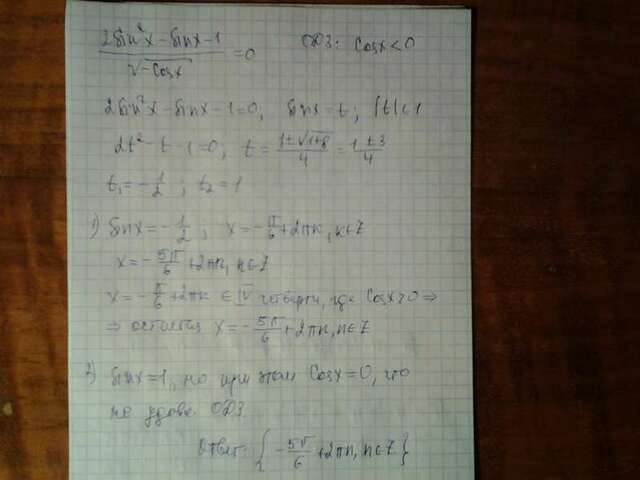 (2sin²x - sinx - 1)/√(-cosx) = 0 ОДЗ: Cosx < 0
2sin²x - sinx - 1 = 0, sinx = t; |t| < 1
2t² - t - 1 = 0, t = (1 ± √(1+8))/4 = (1 ± 3)/4
t₁ = -1/2; t₂ = 1
1) sinx = -1/2; x = -π/6 + 2πk, k∈Z
x = -5π/6 + 2πn, n∈Z
x = -π/6 + 2πk ∈ IV четверти, где Cosx > 0 ⇒
⇒ остаётся x = -5π/6 + 2πn, n∈Z
2) sinx = 1, но при этом Cosx = 0, что
не удовл. ОДЗ.
Ответ: { -5π/6 + 2πn, n∈Z }